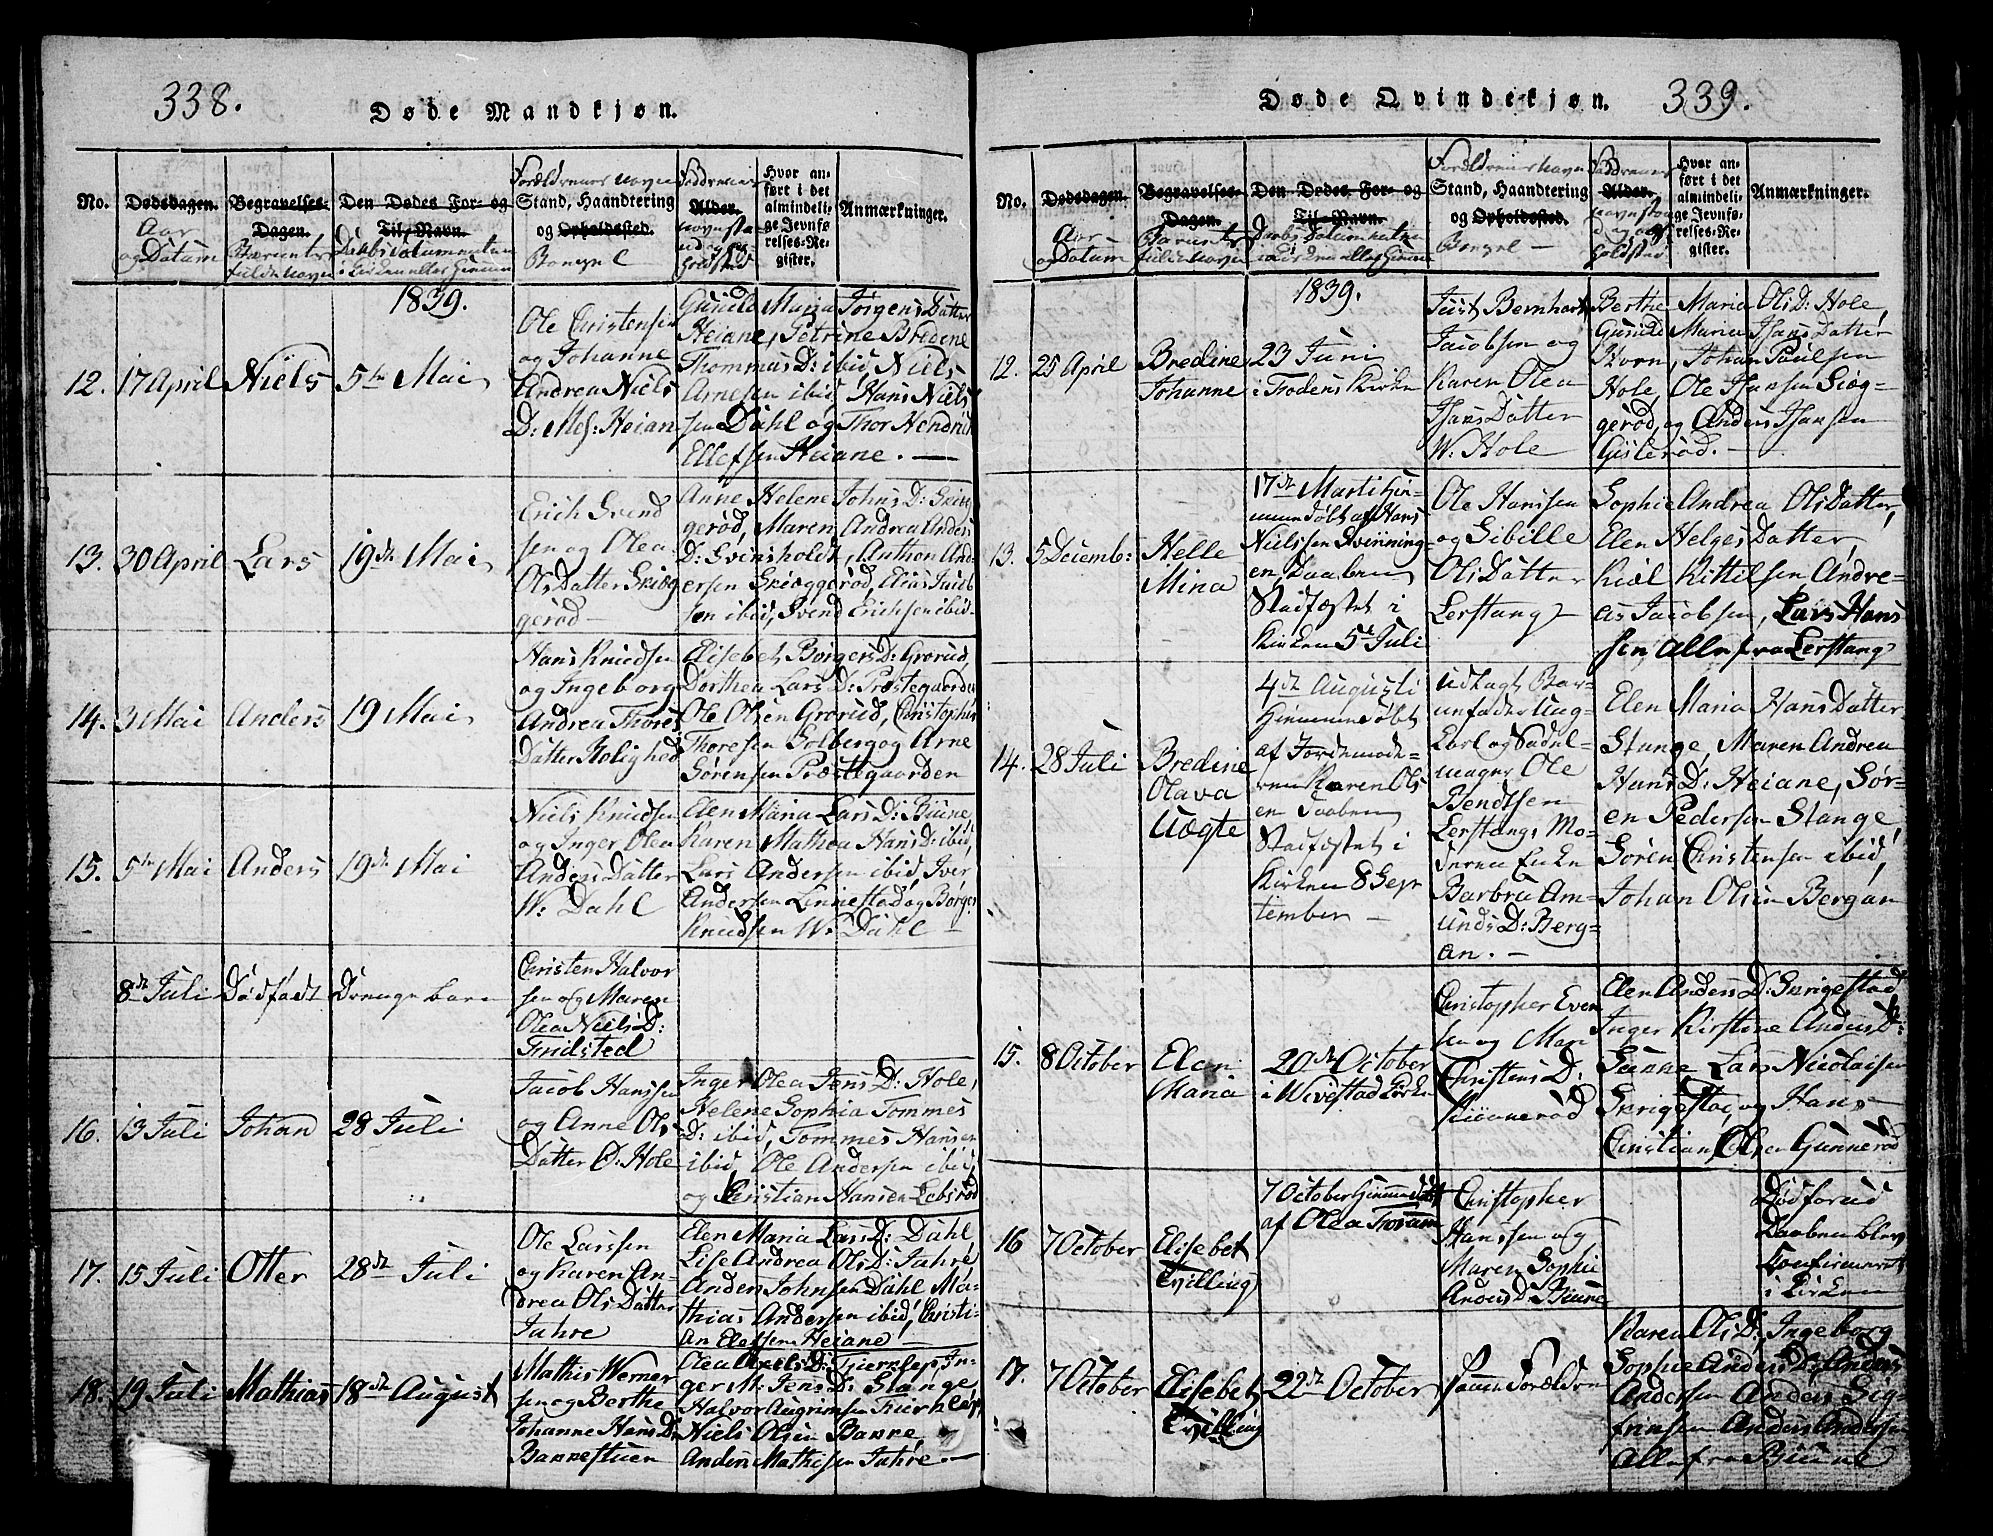 338.
Døde Mandkjøn.
No.
Dødsdagen.
Aar
og Datum
Begravelses-
Dagen.
Barnets
fulde Navn
Den Dødes For- og
Til-Navn.
Daabs datum enten
i Kirken eller Hiemme
Forældrenes Navn
Stand, Haandtering
og Opholdssted.
Bopæl
Faddrenes
Alder.
Navn Sta-
nd og Op-
holdsted
Hvor an-
ført i det
almindeli-
ge Jevnfø-
relses-Re-
gister.
Anmærkninger.
1839.
12. 17 April
Niels
5te Mai
Ole Christensen
og Johanne
Andrea Niels
D: Heian
Gunild Maria Jørgens Datter
Heiane, Petrine Bredene
Thommas D: ibid, Niels
Arnesen ibid, Hans Niels
sen Dahl og Thor Hendrik
Ellefsen Heiane.
13. 30 April
Lars
19de Mai
Erich Svend
sen og Olea
Ols Datter Skiæg
gerød
Anne Helene Johns D: Skiæg
gerød, Maren Andrea Anders
D: Svinsholdt, Anthon And
ersen Skiæggerød, Elias Jacob
sen ibid, Svend Erichsen ibid
14. 3 Mai
Anders
19 Mai
Hans Knudsen
og Ingeborg
Andrea Thores
Datter Rolighed
Elisebet Børgers D: Grorud,
Dorthea Lars D: Præstegaarden
Ole Olsen Grorud, Christopher
Thoresen Solberg og Arne
Sørensen Præstegaarden
15. 5te Mai
Anders
19de Mai
Niels Knudsen
og Inger Olea
Anders Datter
W: Dahl
Elen Maria Lars D: Buine,
Karen Mathea Hans D: ibid,
Lars Andersen ibid, Iver
Andersen Linnestad og Børger
Knudsen W: Dahl
8de Juli
Dødfødt
Drenge barn
Christen Halvor
sen og Maren
Olea Niels D:
Trulsted
16. 13 Juli
Johan
28 Juli
Jacob Hanssen
og Anne Ols
Datter Ø: Hole
Inger Olea Jens D: Hole,
Helene Sophia Tommes
D: ibid, Tommes Hansen
ibid, Ole Andersen ibid
og Christian Hansen Lebsrød
17. 15 Juli
Otter
28de Juli
Ole Larssen
og Karen An-
drea Ols Datter
Jahre
Elen Maria Lars D: Dahl
Lise Andrea Ols D: Jahre
Anders Johnsen Dahl Ma-
thias Andersen ibid, Christi-
an Elefsen Heiane
18. 19 Juli
Mathias
18de August
Mathis Werner
sen og Berthe
Johanne Hans D:
Bakkestuen
Olea Axels D: In-
ger M: Jens D: Stange,
Halvor Augrimsen
Niels Olsen Bakke
Anders Mathisen Jahre.
339.
Døde Qvindekjøn.
No.
Dødsdagen.
Aar
og Datum
Begravelses-
Dagen.
Barnets
fulde Navn
Den Dødes For- og
Til-Navn.
Daabs Datum enten
i Kirken eller Hiemme
Forældrenes Navn
Stand, Haandtering
og Opholdssted.
Bopæl
Faddrenes
Alder.
Navn Sta
nd og Op
holdsted
Hvor an-
ført i det
almindeli-
ge Jevnfø-
relses-Re-
gister.
Anmærkninger.
1839.
12. 25 April
Bredine
Johanne
23 Juni
i Frodens Kirke
Just Bernhart
Jacobsen og
Karen Olea
Hans Datter
W: Hole
Berthe Maria Ols D: Hole,
Gunild Maria Hans Datter
Horn, Johan Paulsen
Hole, Ole Hansen Skiæg-
gerød, og Anders Hansen
Gislerød.
13. 5 Decemb:
Helle
Mina
17de Marti Hie-
mme døbt af Hans
Nielssen Kverning
en, Daaben
Stadfæstet i
Kirken 5te Juli
Ole Hanssen
og Sibille
Ols Datter
Lerstang
Sophie Andrea Ols Datter,
Elen Helges Datter
Kiøl Kittilsen, Andre-
as Jacobsen, Lars Hans
sen Alle fra Lerstang
14. 28 Juli
Bredine
Olava
Uægte
4de Augusti
Hiemme døbt
af Jordemode-
ren Karen Ols
en Daaben
Stadfæstet i
Kirken 8 Sep
tember
Udlagt Bar-
unfader Ung-
karl og Sadel-
mager Ole
Bendtsen
Lerstang, Mo-
deren Enke
Barbru Am-
unds D: Berg-
an.
Elen Maria Hans Datter
Stange, Maren Andrea
Hans D: Heiane, Sør-
en Pedersen Stange
Søren Christensen ibid,
Johan Olsen Bergan
15. 8 October
Elen
Maria
20de October
i Wivestad Kirke
Christopher Even
sen og Mari
Christens D:
Elen Anders D: Skrigestad
Inger Kirstine Anders D:
Lars Nicolaisen
Skrigestad, og Hans
Christian Olsen Gunnerød
16 7 October
Elisebet
Tvilling
7 October Hiemme døbt
af Olea
Christopher
Hanssen og
Maren Sophie
Anders D: Buine
Død forud
Daaben blev
Konfirmeret
i Kirken
17. 7 October
Elisebet
Tvilling
22de October
Samme Forældre
Karen Ols D: Ingeborg
Sophie Anders D: Anders
Andersen Anders Sig-
frinsen Anders Andersen
Alle fra Buine